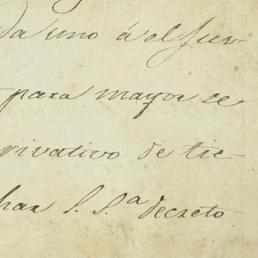 da uno á el Jur-
para mayor se
privativo de tie-
har S. S.ª decreto